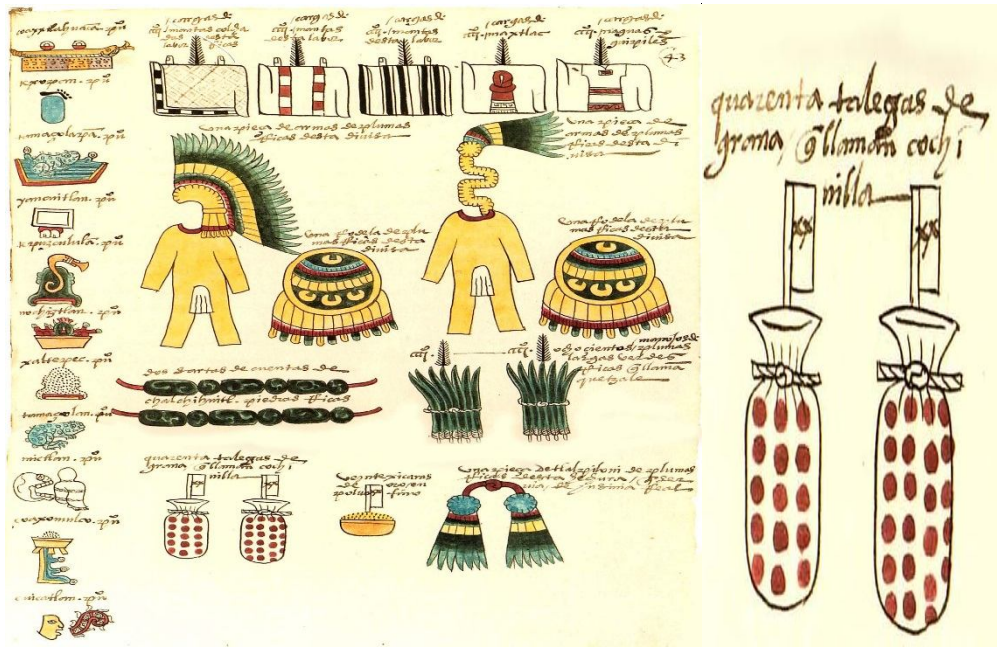 coayxtlahuacan. puo
texopan. puo
tamaçolapa. puo
yancuitlan. puo
tepuzcululа. puo
nochiztlan. puo
xaltepec. puo
tamaçolan. puo
mictlan. puo
coaxomulco. puo
cuicatlan. puo
cargas de
mantas colcha
das desta
labor
cargas de
mantas
desta labor
cargas de
mantas
desta labor
cargas de
maxtlac
cargas de
naguas y
guipiles
43
una pieça de armas de plumas
ricas desta divisa
una pieça de
armas de plumas
ricas desta di
visa
una rodela de plu
mas ricas desta
divisa
una rodela de plu
mas ricas desta
divisa
dos sartas de cuentas de
chalchihuitl. piedras ricas
ochocientos manojos de
plumas
largas verdes
ricas q llama
quetzale
quarenta talegas de
grana q llaman cochi
nilla
veynte xicaras
de oro en
polvo fino
una pieça de tlalpiloni de plumas
ricas
quarenta talegas de
grana, q llaman cochi
nilla